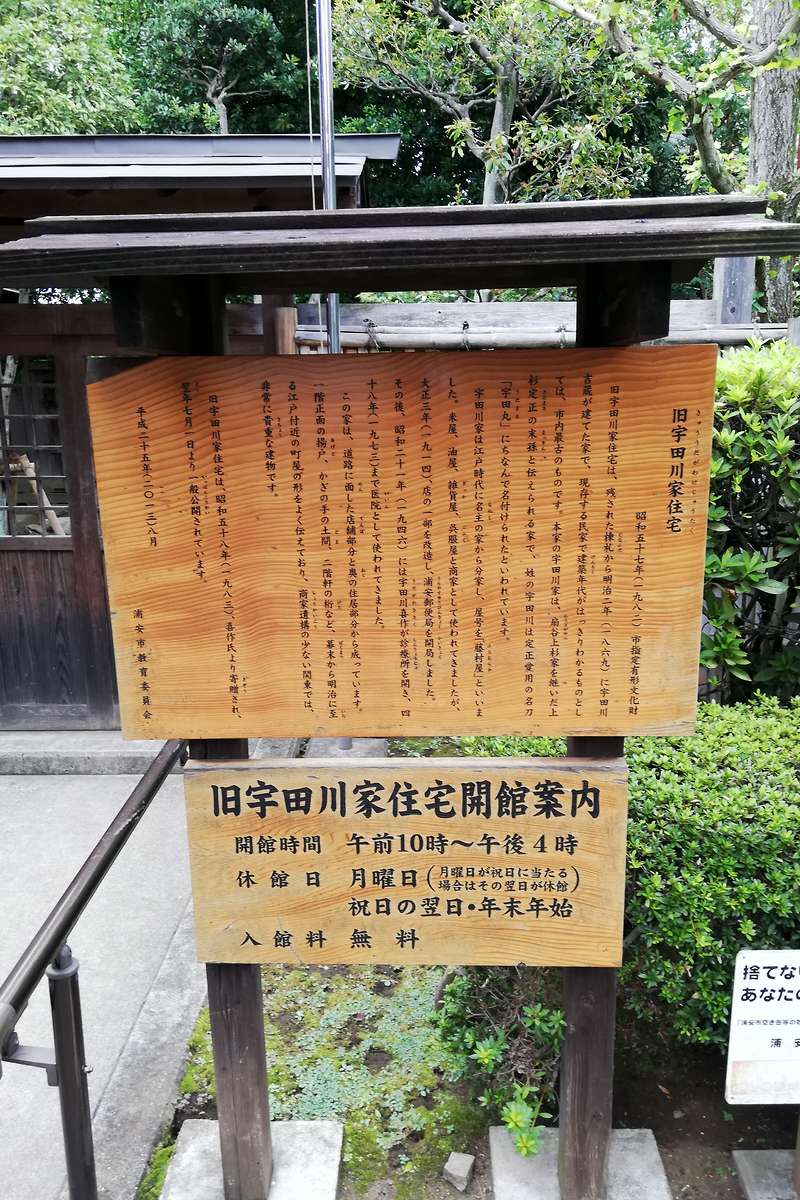 旧宇田川家住宅
昭和五十七年(一九八二)市指定有形文化財
旧宇田川家住宅は、残された棟札から明治二年(一八六九)に宇田川
吉蔵が建てた家で、現存する民家で建築年代がはっきりわかるものとし
ては、市内最古のものです。本家の宇田川家は、扇谷上杉家を継いだ上
杉定正の末孫と伝えられる家で、姓の宇田川は定正愛用の名刀
「宇田丸」にちなんで名付けられたといわれています。
宇田川家は江戸時代に名主の家から分家し、屋号を「藤村屋」といいま
した。米屋、油屋、雑貨屋、呉服屋と商家として使われてきましたが、
大正三年(一九一四)、店の一部を改造し、浦安郵便局を開局しました。
その後、昭和二十一年(一九四六)には宇田川喜作が診療所を開き、四
十八年(一九七三)まで医院として使われてきました。
この家は、道路に面した店舗部分と奥の住居部分から成っています。
一階正面の揚戸、かぎの手の土間、二階軒の桁など、幕末から明治に至
る江戸付近の町屋の形をよく伝えており、商家遺構の少ない関東では、
非常に貴重な建物です。
旧宇田川家住宅は、昭和五十八年(一九八三)、喜作氏より寄贈され、
翌年七月一日より一般公開されています。
平成二十五年(二〇一三)八月
浦安市教育委員会
旧宇田川家住宅開館案内
開館時間 午前10時〜午後4時
休館日 月曜日(月曜日が祝日に当たる
場合はその翌日が休館)
祝日の翌日・年末年始
入館料 無料
捨てな
あなたの
浦安